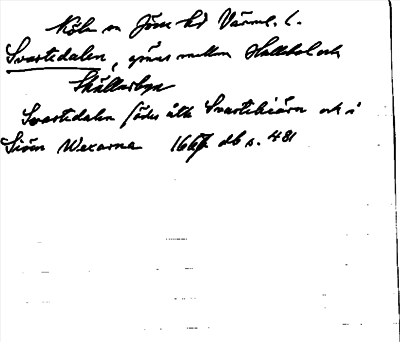 Köla sn Jösse hd Värml. l.
Svartedalen, gräns mellan Stallebol och
Skällarbyn
Svartedalen södes åth Svartekiärn och i
Siöen Wexarna 1667 db s. 481